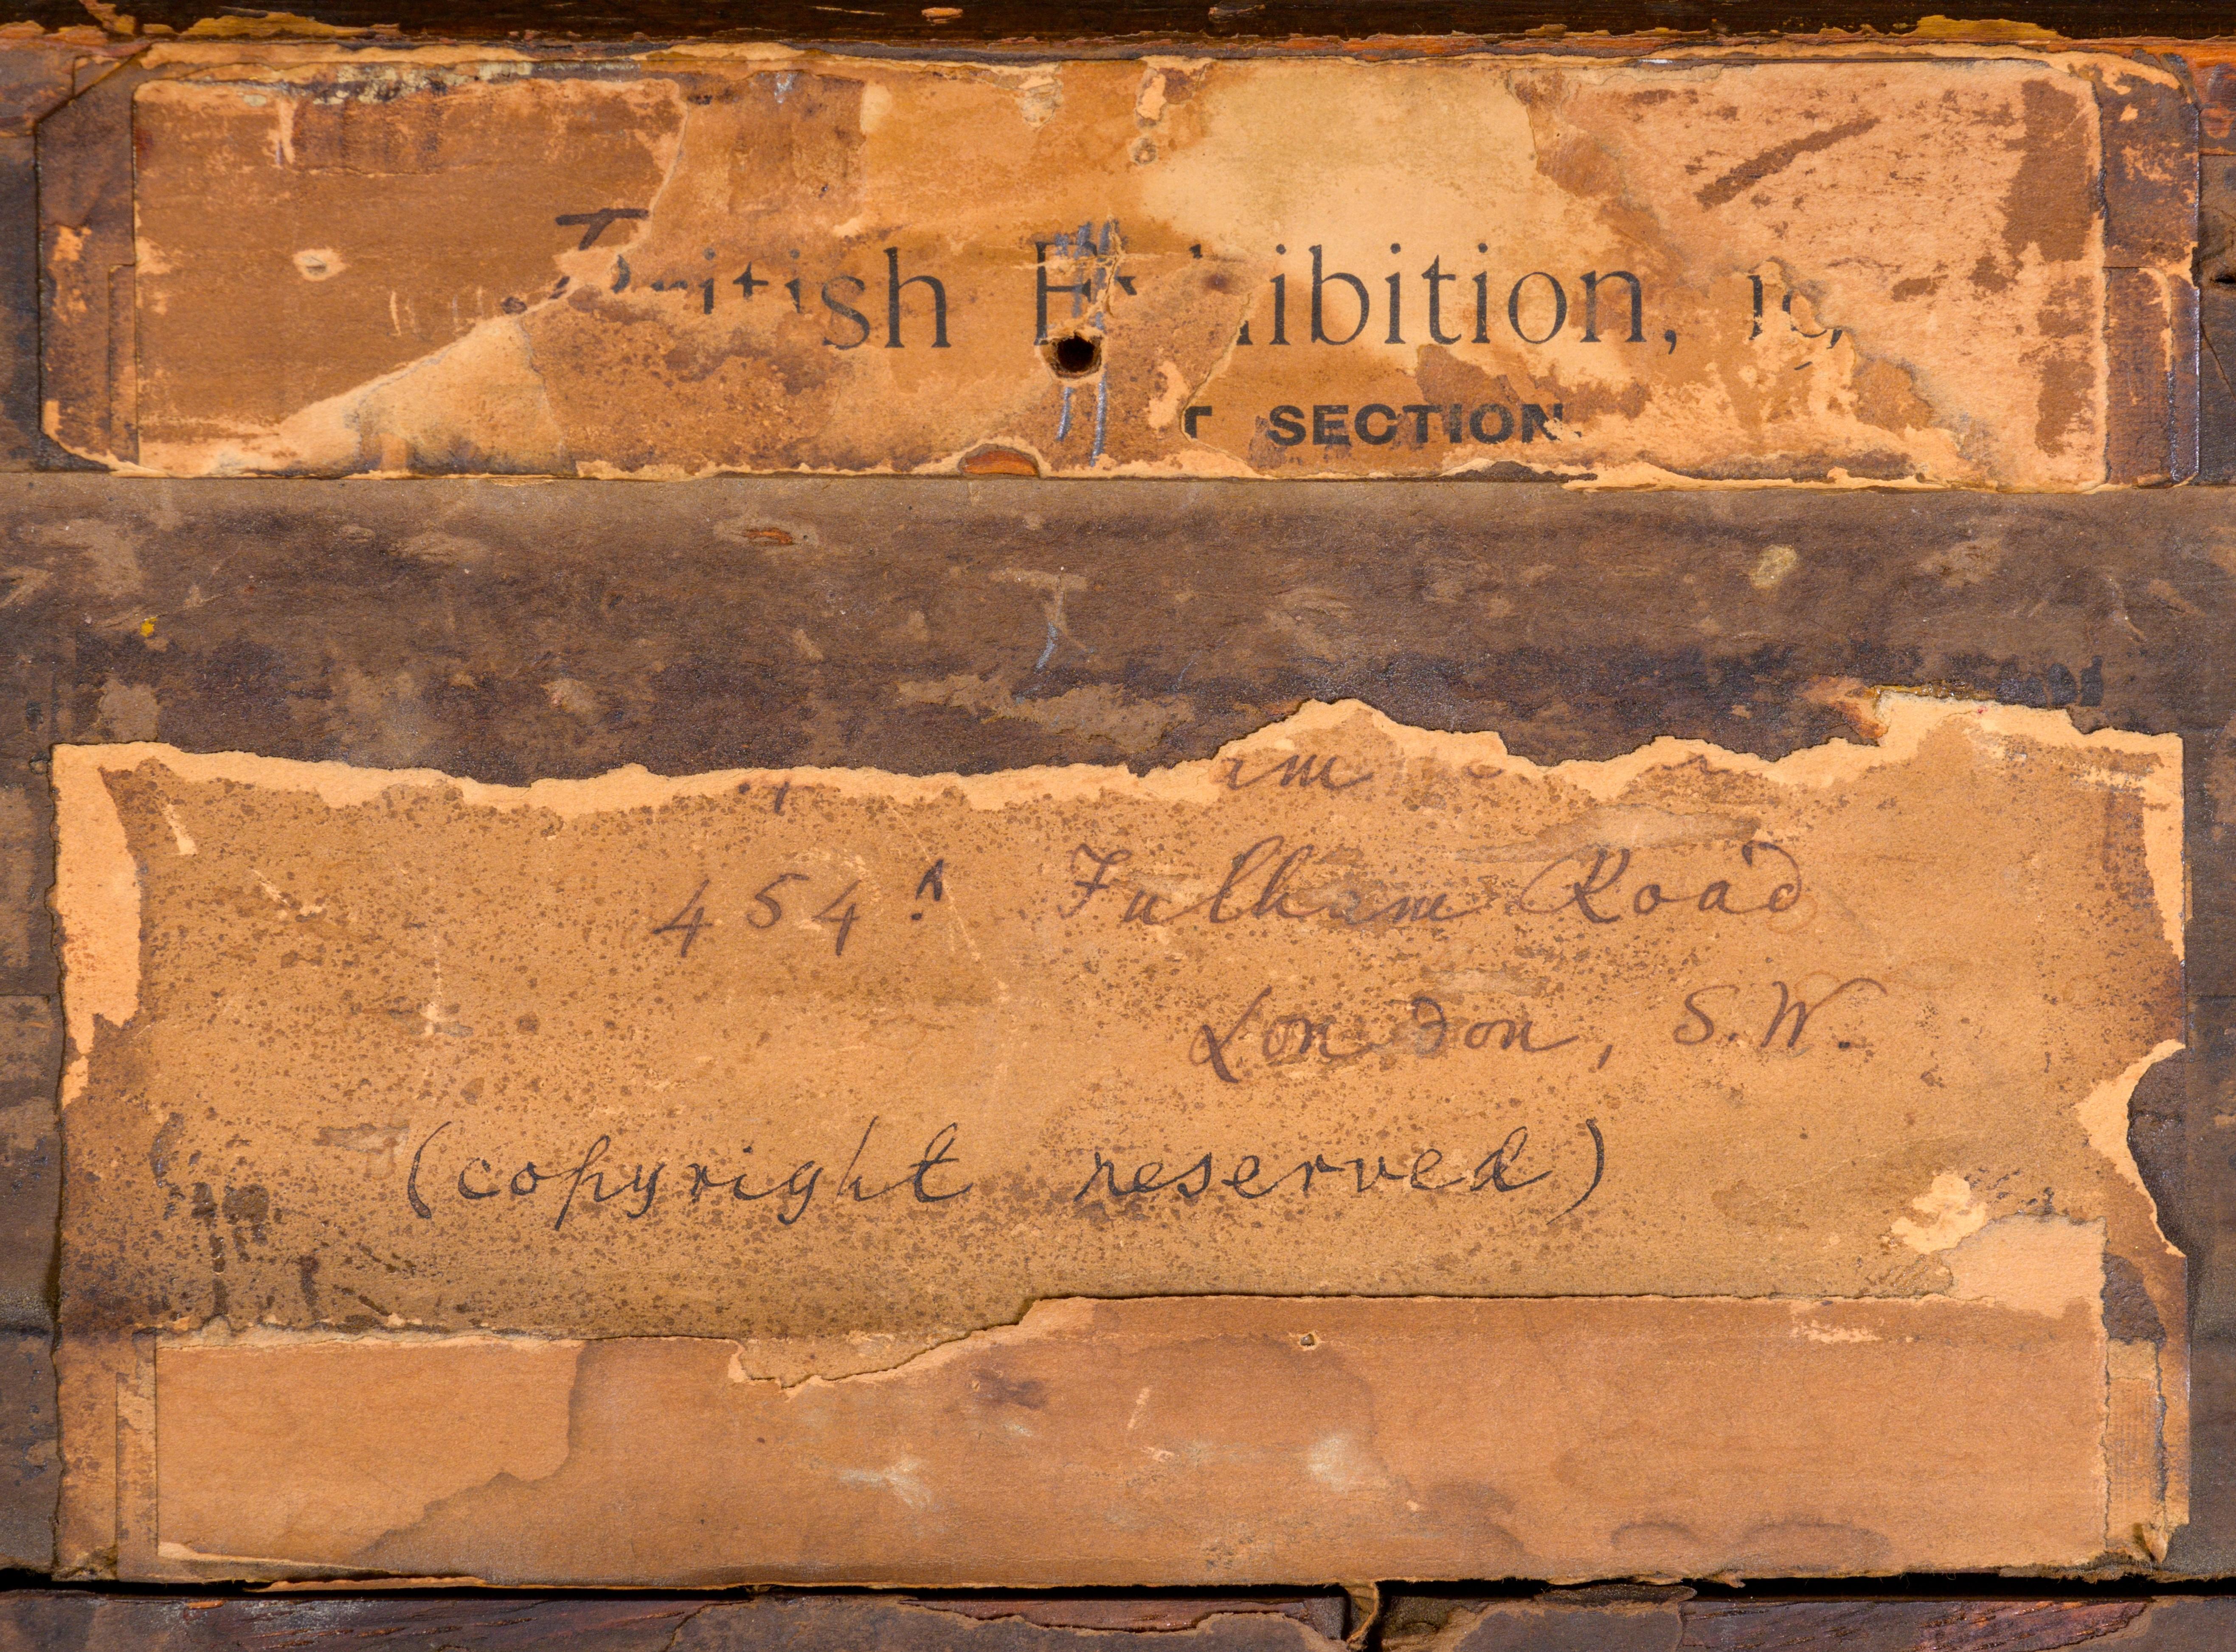 British Exhibition,
SECTION.
454A Fulham Road
London, S.W.
(copyright reserved)